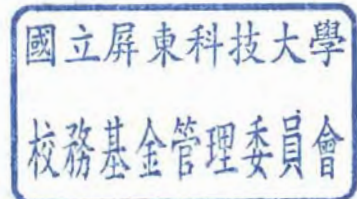 國立屏東科技大學
校務基金管理委員會